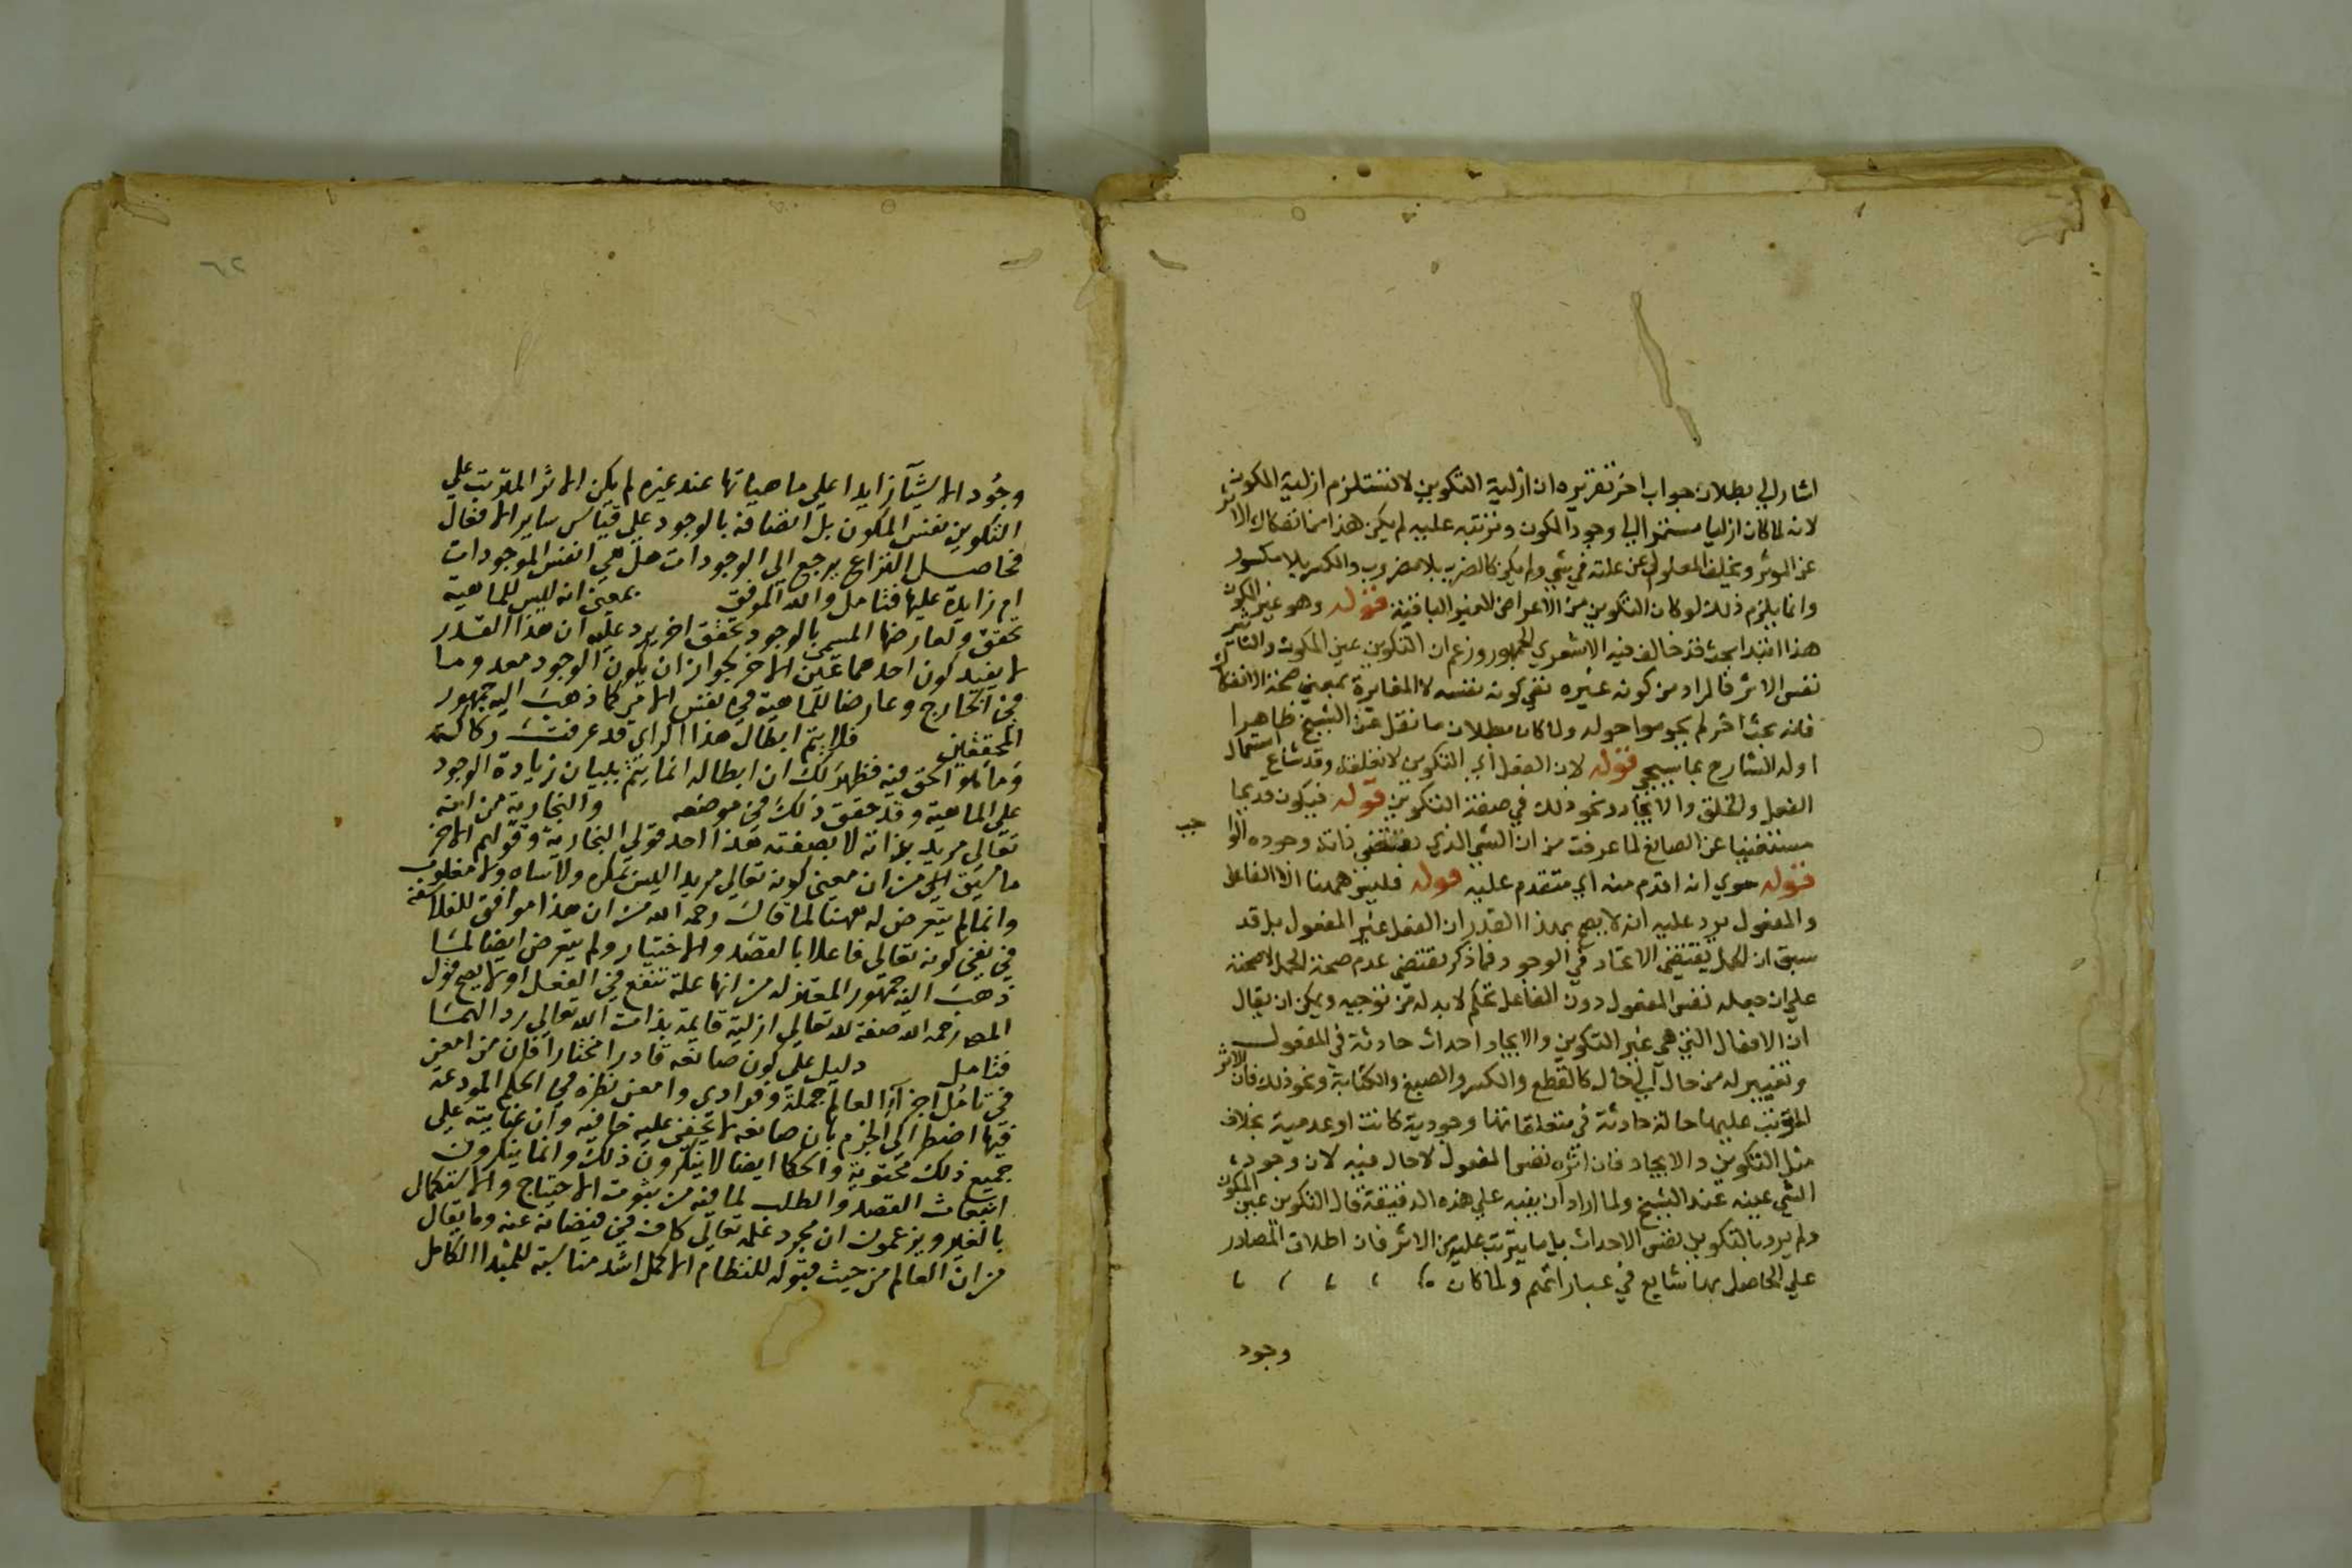 اشار الي بطلان جواب اخر تقريره ان ازلية التكوين لا تستلزم ازلية المكون
لانه لما كان ازليا مستمرا الي وجود المكون وترتبه عليه لم يكن هذا من انفكاك الاثر
عن الموثر وتخلف المعلول عن علته في شي ولم يكن كالضرب بلا مضروب والكسر بلا مكسور
وانما يلزم ذلك لو كان التكوين من الاعراض الغير الباقية قوله وهو غير المكون
هذا ابتدا بحث قد خالف فيه الاشعري الجمهور وزعم ان التكوين عين المكون والتاثير
نفس الاثر فالمراد من كونه غيره نفي كونه نفسه لا المغايرة بمعني صحة الانفكاك
فانه بحث اخر لم يحوموا حوله ولما كان بطلان ما نقل عن الشيخ ظاهرا
اوله الشارح بما سيجي قوله لان الفعل اي التكوين وقد شاع استعمال
الفعل والخلق والايجاد ونحو ذلك في صفة التكوين قوله فيكون قديما
مستغنيا عن الصانع لما عرفت من ان الشي الذي يقتضي ذاته وجوده الوا
جب
قوله سوي انه اقدم منه اي متقدم عليه قوله فليس ههنا الا الفاعل
والمفعول يرد عليه انه لا يصح بهذا القدر ان الفعل غير المفعول بل قد
سبق ان الحمل يقتضي الاتحاد في الوجود فما ذكر يقتضي عدم صحة الحمل لا صحته
علي ان جعله نفس المفعول دون الفاعل تحكم لا بد له من توجيه ويمكن ان يقال
ان الافعال التي هي غير التكوين والايجاد احداث حادثة في المفعول
وتغيير له من حال الي حال كالقطع والكسر والصبغ والكتابة ونحو ذلك فان الاثر
المرتب عليها حالة حادثة في متعلقاتها وجودية كانت او عدمية بخلاف
مثل التكوين والايجاد فان اثره نفس المفعول لا حال فيه لان وجود
الشي عينه عند الشيخ ولما اراد ان ينبه علي هذه الدقيقة قال التكوين عين المكون
ولم يرد بالتكوين نفس الاحداث بل ما يترتب عليه من الاثر فان اطلاق المصادر
علي الحاصل بها شايع في عباراتهم ولما كان
وجود
٦٢
وجود الاشيآ زايدا علي ماهياتها عند غيره لم يكن الاثر المترتب علي
التكوين نفس المكون بل اتصافه بالوجود علي قياس ساير الافعال
فحاصل النزاع يرجع الي الوجودات هل هي انفس الموجودات
ام زايدة عليها فتامل والله الموفق بمعني انه ليس للماهية
تحقق ولعارضها المسمي بالوجود تحقق اخر يرد عليه ان هذا القدر
لا يفيد كون احدهما عين الاخر لجواز ان يكون الوجود معدوما
في الخارج وعارضا للماهية في نفس الامر كما ذهب اليه جمهور
المحققين فلا يتم ابطال هذا الراي قد عرفت ركاكته
وما هو الحق فيه فظهر لك ان ابطاله انما يتم ببيان زيادة الوجود
علي الماهية وقد حقق ذلك في موضعه والنجارية من انه
تعالي مريد بذاته لا بصفته هذا احد قولي النجارية وقولهم الاخر
ما سبق الي من ان معني كونه تعالي مريدا ليس بمكره ولا ساه ولا مغلوب
وانما لم يتعرض له ههنا لما قال رحمه الله من ان هذا موافق للفلاسفة
في نفي كونه تعالي فاعلا بالقصد والاختيار ولم يتعرض ايضا لما
ذهب اليه جمهور المعتزله من انها علة تنفع في الفعل قول
المص رحمه الله صفة لله تعالي ازلية قايمة بذات الله تعالي رد الهما
فتامل دليل علي كون صانعه قادرا مختارا فان من امعن
في تامل اجزآ العالم جملة وفرادي وامعن نظره في الحكم المودعة
فيها اضطر الي الجزم بان صانعه لا يخفي عليه خافيه وان عنايته علي
جميع ذلك محتوية والحكما ايضا لا ينكرون ذلك وانما ينكرون
انبعاث القصد والطلب لما فيه من ثبوت الاحتياج والاستكمال
بالغير ويزعمون ان مجرد علمه تعالي كاف في فيضانه عنه وما يقال
من ان العالم من حيث قبوله للنظام الاكمل اشد مناسبة للمبدا الكامل